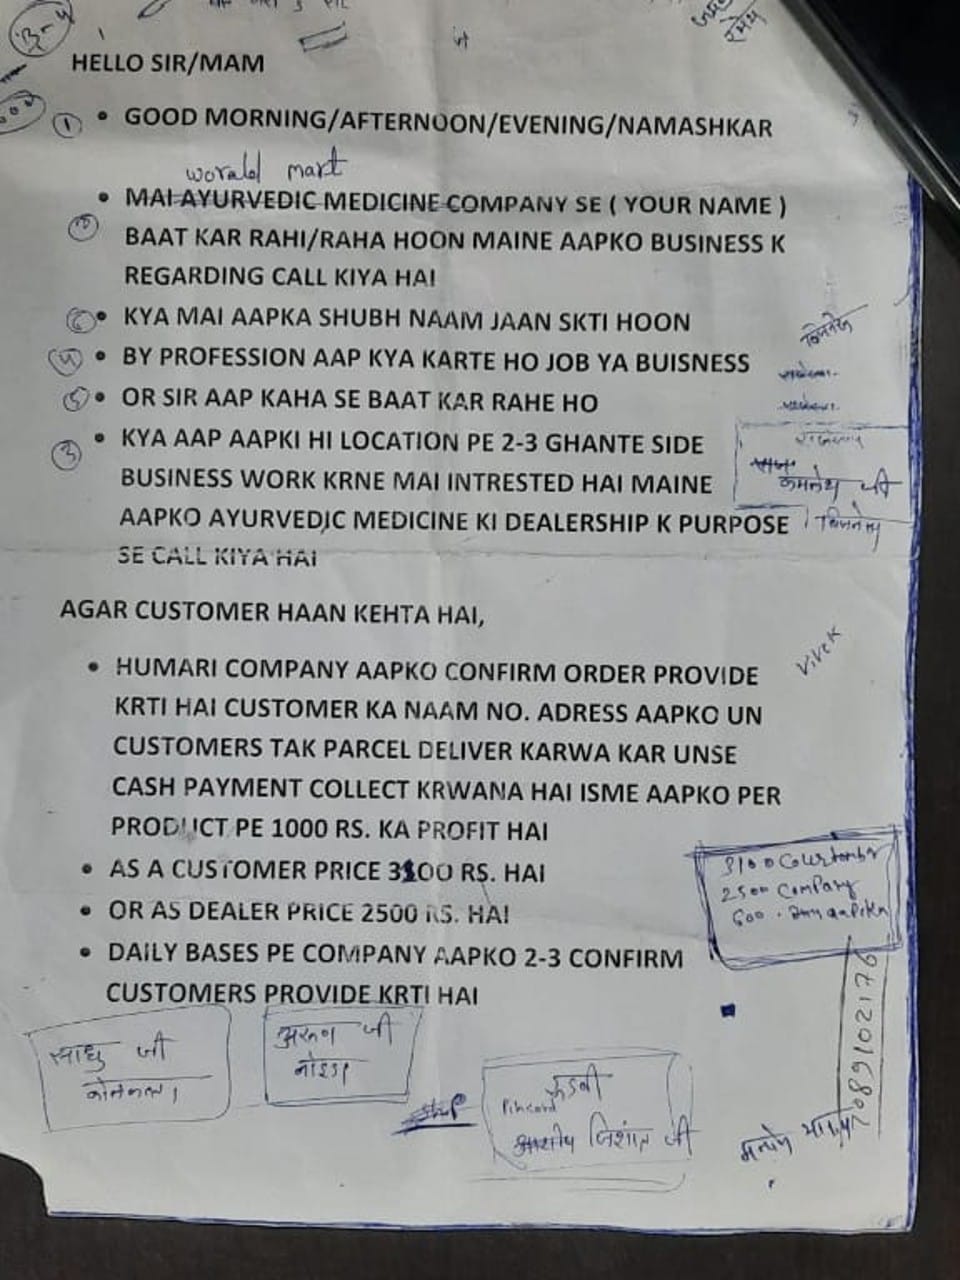 HELLO SIR/MAM
1 • GOOD MORNING/AFTERNOON/EVENING/NAMASHKAR
worald mart
2 • MAI AYURVEDIC MEDICINE COMPANY SE ( YOUR NAME )
BAAT KAR RAHI/RAHA HOON MAINE AAPKO BUSINESS K
REGARDING CALL KIYA HAI
• KYA MAI AAPKA SHUBH NAAM JAAN SKTI HOON
• BY PROFESSION AAP KYA KARTE HO JOB YA BUISNESS
5 • OR SIR AAP KAHA SE BAAT KAR RAHE HO
3 • KYA AAP AAPKI HI LOCATION PE 2-3 GHANTE SIDE
BUSINESS WORK KRNE MAI INTRESTED HAI MAINE
कमलेश जी
AAPKO AYURVEDIC MEDICINE KI DEALERSHIP K PURPOSE
SE CALL KIYA HAI
AGAR CUSTOMER HAAN KEHTA HAI,
vivek
• HUMARI COMPANY AAPKO CONFIRM ORDER PROVIDE
KRTI HAI CUSTOMER KA NAAM NO. ADRESS AAPKO UN
CUSTOMERS TAK PARCEL DELIVER KARWA KAR UNSE
CASH PAYMENT COLLECT KRWANA HAI ISME AAPKO PER
PRODUCT PE 1000 RS. KA PROFIT HAI
• AS A CUSTOMER PRICE 3100 RS. HAI
3100
2500 company
600
• OR AS DEALER PRICE 2500 RS. HAI
• DAILY BASES PE COMPANY AAPKO 2-3 CONFIRM
CUSTOMERS PROVIDE KRTI HAI
साधु जी
अरुण जी
नोइडा
Pincord
निशांत जी